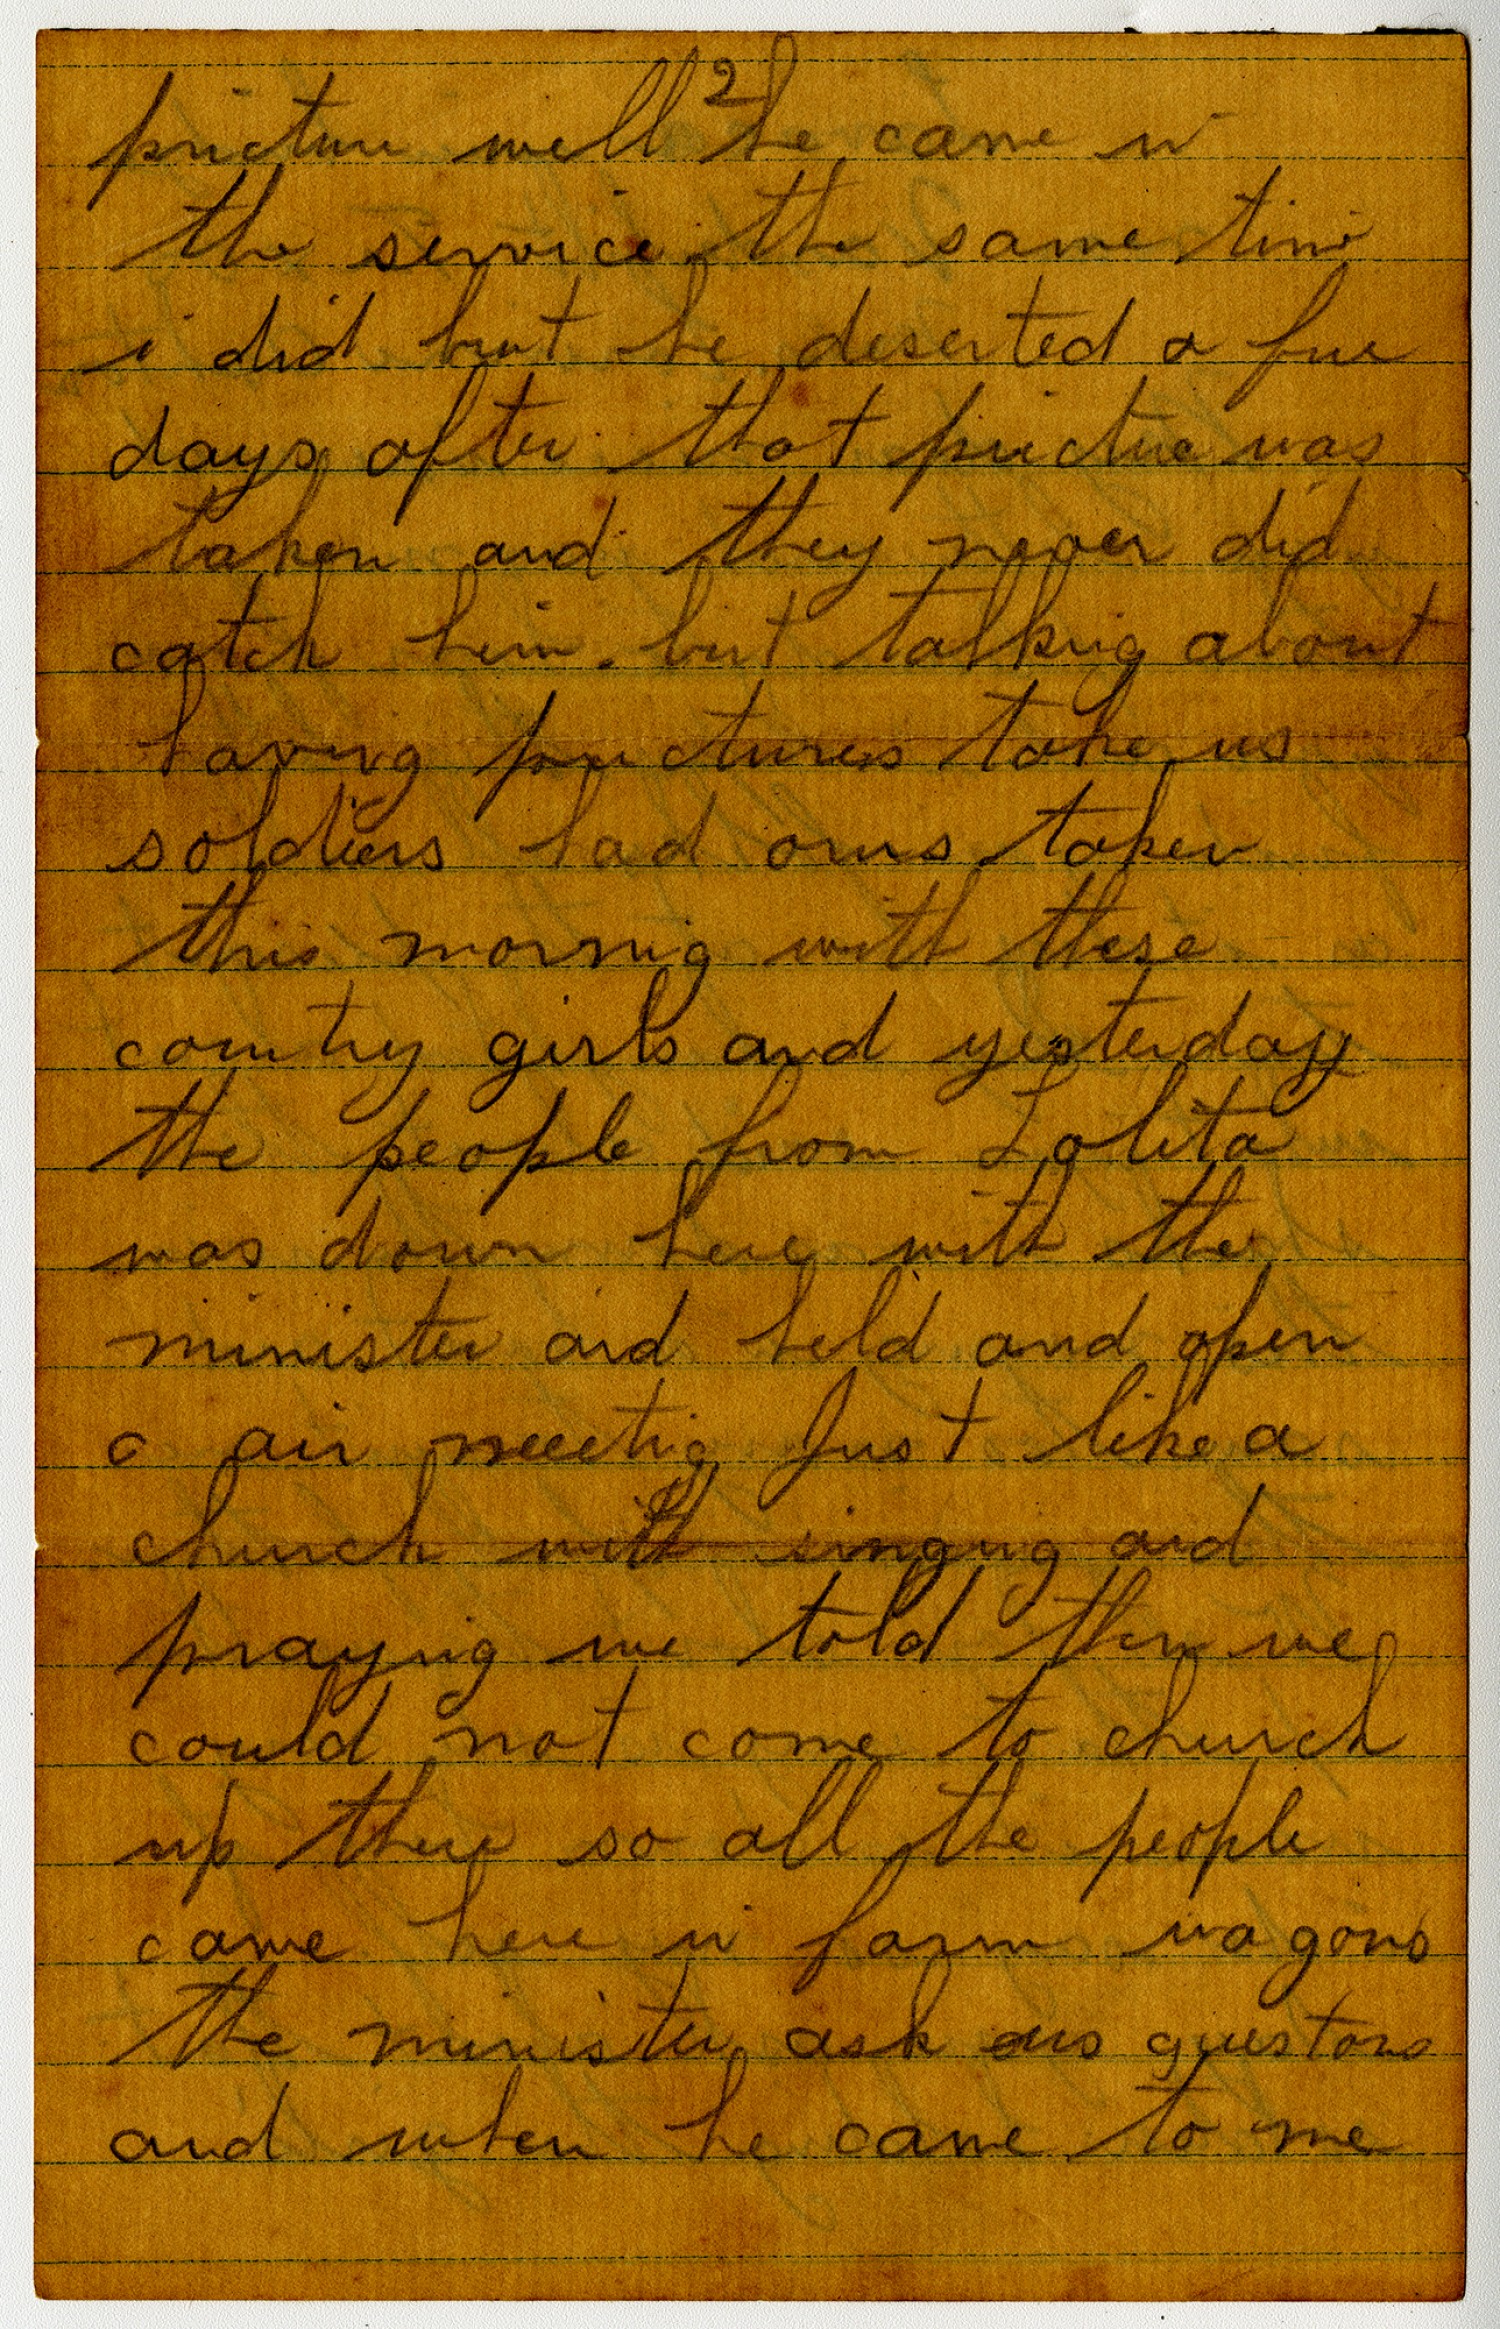 2
pricture well he came in
the service the same time
i did but he deserted a fue
days after that pricture was
taken and they never did
catch him. but talking about
having prictures take us
soldiers had ours taken
this morning with these
country girls and yesterday
the people from Lolita
was down here with the
minister and held and open
a air meeting Just like a
church with singing and
praying we told them we
could not come to church
up there so all the people
came here in farm wagons
the minister ask us questons
and when he came to me